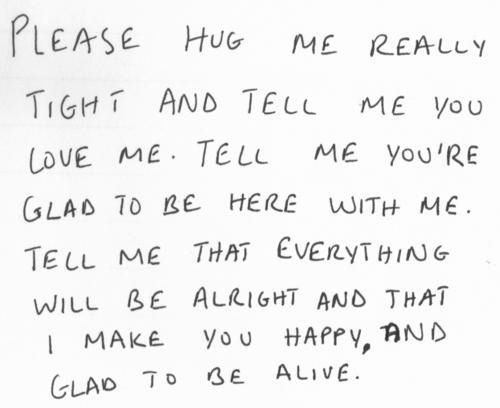 PLEASE HUG ME REALLY
TIGHT AND TELL ME YOU
LOVE ME. TELL ME YOU'RE
GLAD TO BE HERE WITH ME.
TELL ME THAT EVERYTHING
WILL BE ALRIGHT AND THAT
I MAKE YOU HAPPY, AND
GLAD TO BE ALIVE.